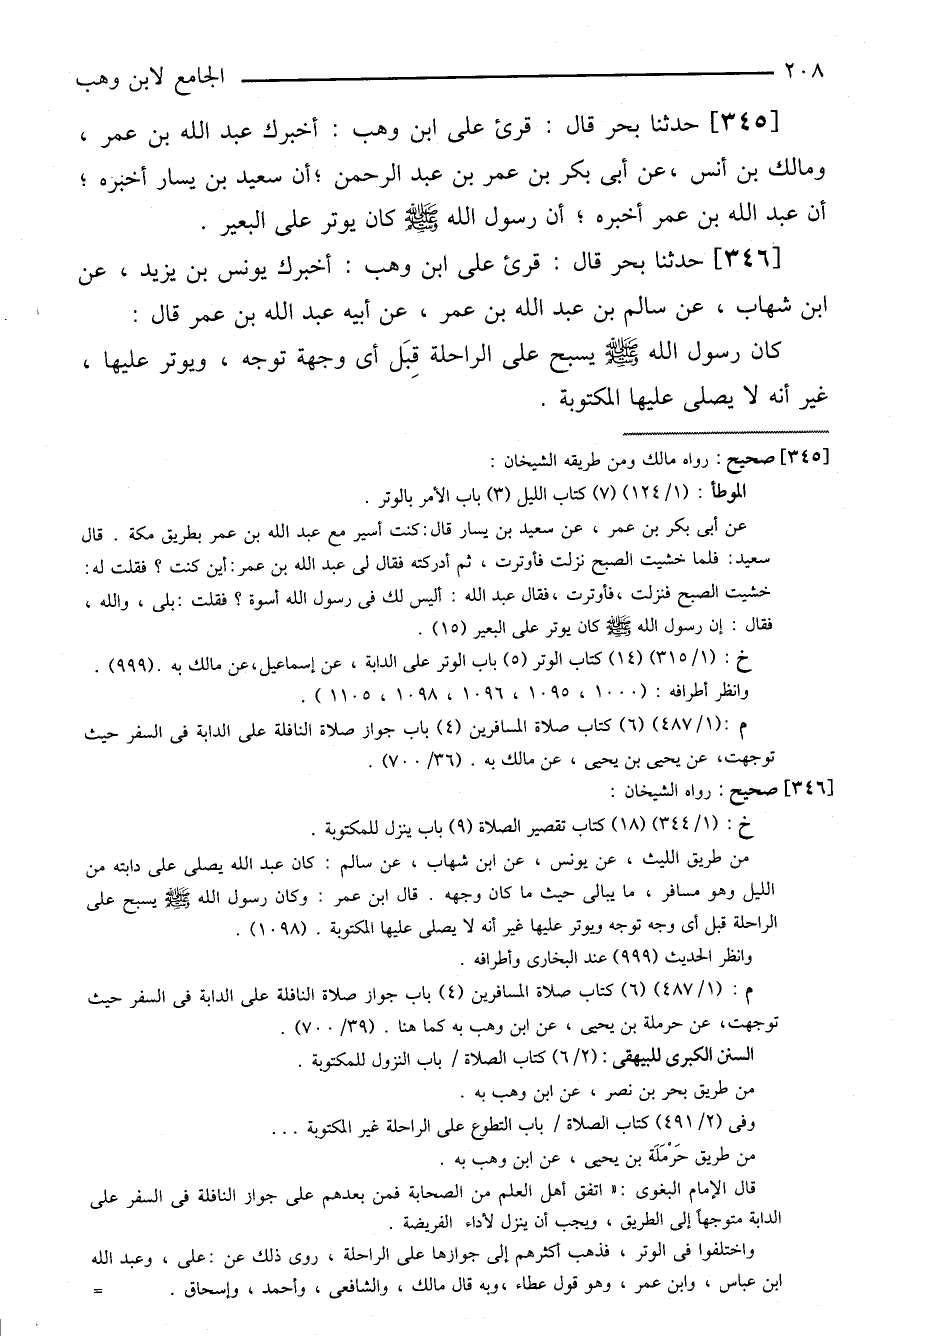 ٢٠٨ الجامع لابن وهب
[٣٤٥] حدثنا بحر قال : قرئ على ابن وهب : أخبرك عبد الله بن عمر ،
ومالك بن أنس ، عن أبى بكر بن عمر بن عبد الرحمن ؛أن سعيد بن يسار أخبره ؛
أن عبد الله بن عمر أخبره ؛ أن رسول الله ﷺ كان يوتر على البعير .
[٣٤٦] حدثنا بحر قال : قرئ على ابن وهب : أخبرك يونس بن يزيد ، عن
ابن شهاب ، عن سالم بن عبد الله بن عمر ، عن أبيه عبد الله بن عمر قال :
كان رسول الله ﷺ يسبح على الراحلة قِبَل أى وجهة توجه ، ويوتر عليها ،
غير أنه لا يصلى عليها المكتوبة .
[٣٤٥] صحيح : رواه مالك ومن طريقه الشيخان :
الموطأ : (١/ ١٢٤) (٧) كتاب الليل (٣) باب الأمر بالوتر .
عن أبى بكر بن عمر ، عن سعيد بن يسار قال:كنت أسير مع عبد الله بن عمر بطريق مكة . قال
سعيد: فلما خشيت الصبح نزلت فأوترت ، ثم أدركته فقال لى عبد الله بن عمر:أين كنت ؟ فقلت له:
خشيت الصبح فنزلت ،فأوترت ، فقال عبد الله : أليس لك فى رسول الله أسوة ؟ فقلت :بلى ، والله ،
فقال : إن رسول الله ﷺ كان يوتر على البعير (١٥) .
خ : (١/ ٣١٥) (١٤) كتاب الوتر (٥) باب الوتر على الدابة ، عن إسماعيل،عن مالك به .(٩٩٩) .
وانظر أطرافه : (١٠٠٠ ، ١٠٩٥ ، ١٠٩٦ ، ١٠٩٨ ، ١١٠٥ ) .
م :(١/ ٤٨٧) (٦) كتاب صلاة المسافرين (٤) باب جواز صلاة النافلة على الدابة فى السفر حيث
توجهت، عن يحيى بن يحيى ، عن مالك به . (٣٦/ ٧٠٠) .
[٣٤٦] صحيح : رواه الشيخان :
خ : (١/ ٣٤٤) (١٨) كتاب تقصير الصلاة (٩) باب ينزل للمكتوبة .
من طريق الليث ، عن يونس ، عن ابن شهاب ، عن سالم : كان عبد الله يصلى على دابته من
الليل وهو مسافر ، ما يبالى حيث ما كان وجهه . قال ابن عمر : وكان رسول الله ﷺ يسبح على
الراحلة قبل أى وجه توجه ويوتر عليها غير أنه لا يصلى عليها المكتوبة . (١٠٩٨) .
وانظر الحديث (٩٩٩) عند البخارى وأطرافه .
م : (١/ ٤٨٧) (٦) كتاب صلاة المسافرين (٤) باب جواز صلاة النافلة على الدابة فى السفر حيث
توجهت، عن حرملة بن يحيى ، عن ابن وهب به كما هنا . (٣٩/ ٧٠٠) .
السنن الكبرى للبيهقى : (٢/ ٦) كتاب الصلاة / باب النزول للمكتوبة .
من طريق بحر بن نصر ، عن ابن وهب به .
وفى (٢/ ٤٩١) كتاب الصلاة / باب التطوع على الراحلة غير المكتوبة ...
من طريق حَرْمَلَة بن يحيى ، عن ابن وهب به .
قال الإمام البغوى :« اتفق أهل العلم من الصحابة فمن بعدهم على جواز النافلة فى السفر على
الدابة متوجهاً إلى الطريق ، ويجب أن ينزل لأداء الفريضة .
واختلفوا فى الوتر ، فذهب أكثرهم إلى جوازها على الراحلة ، روى ذلك عن :على ، وعبد الله
ابن عباس ، وابن عمر ، وهو قول عطاء ،وبه قال مالك ، والشافعى ، وأحمد ، وإسحاق . =